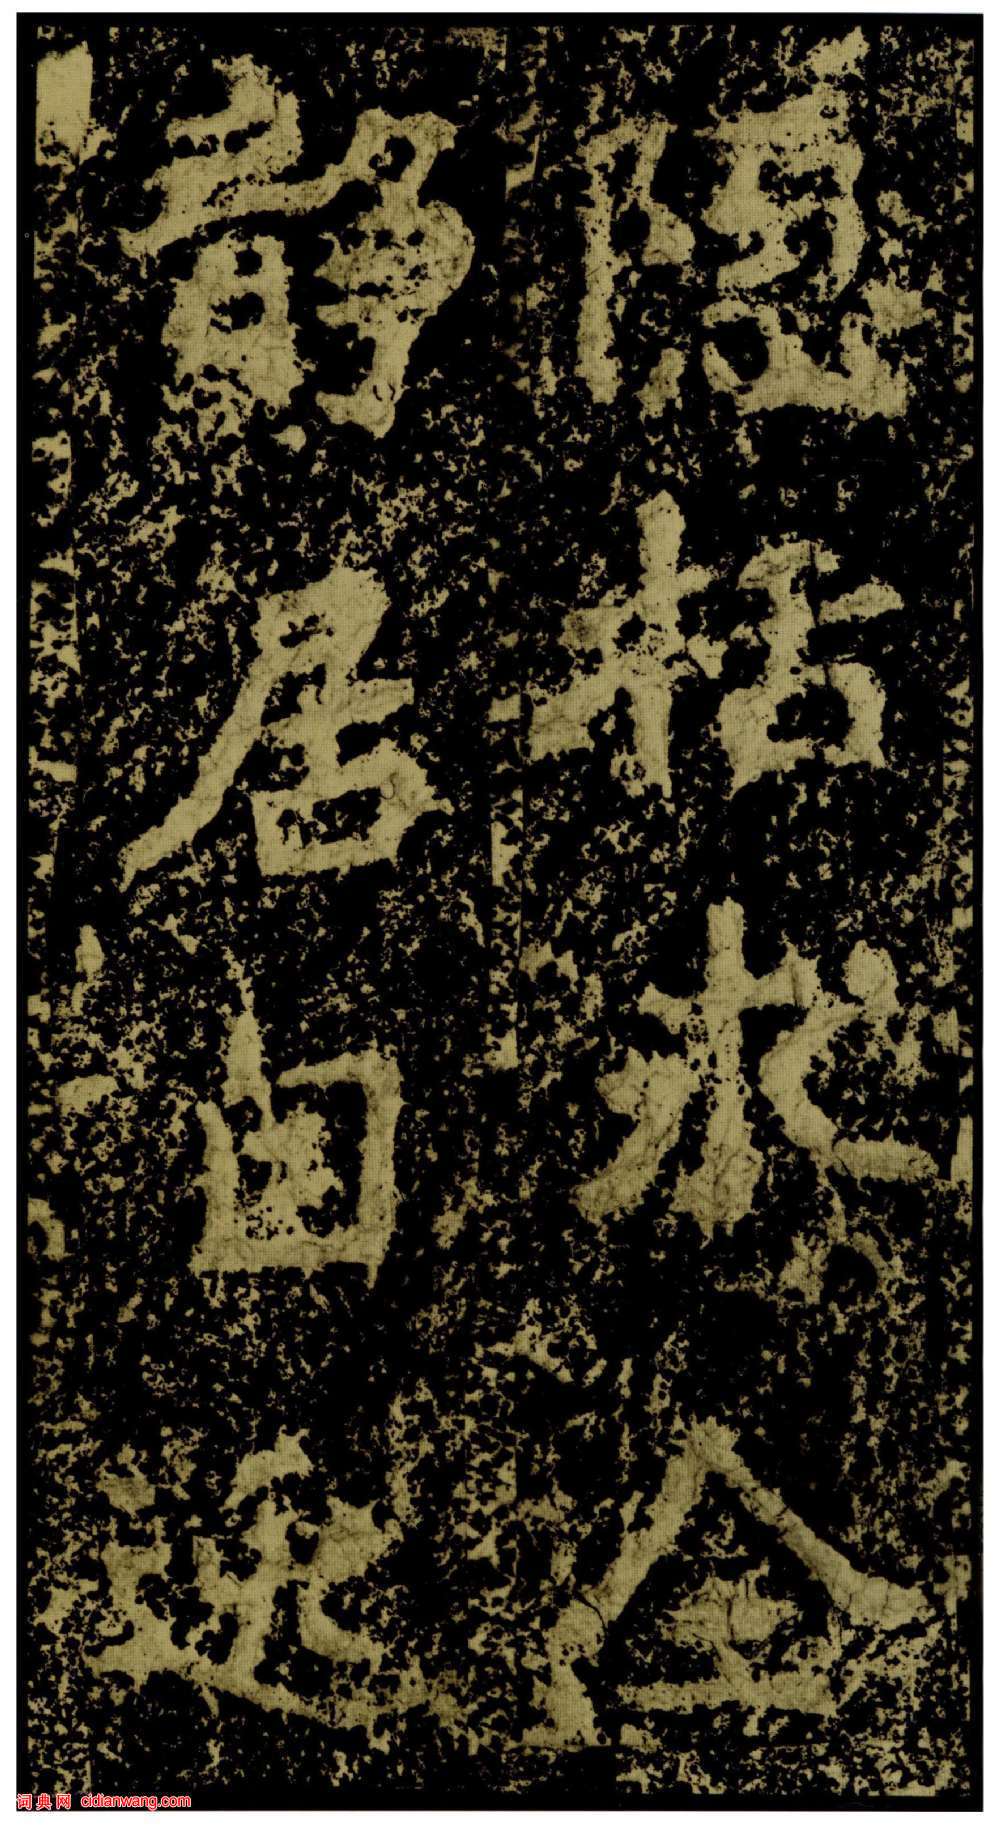 隱括求全
靜居自逸
词典网 cidianwang.com